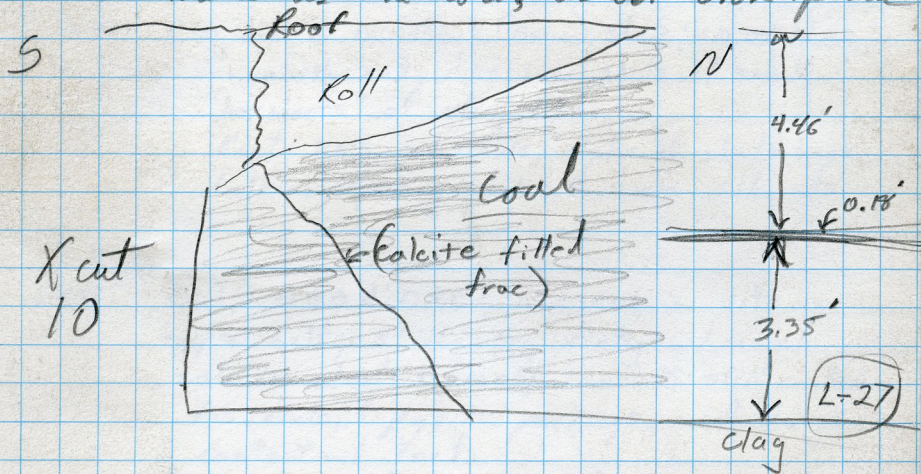 Roof
S
Roll
N
4.46'
coal
0.18'
X cut
10
(Calcite filled
frac)
3.35'
L-27
Clay